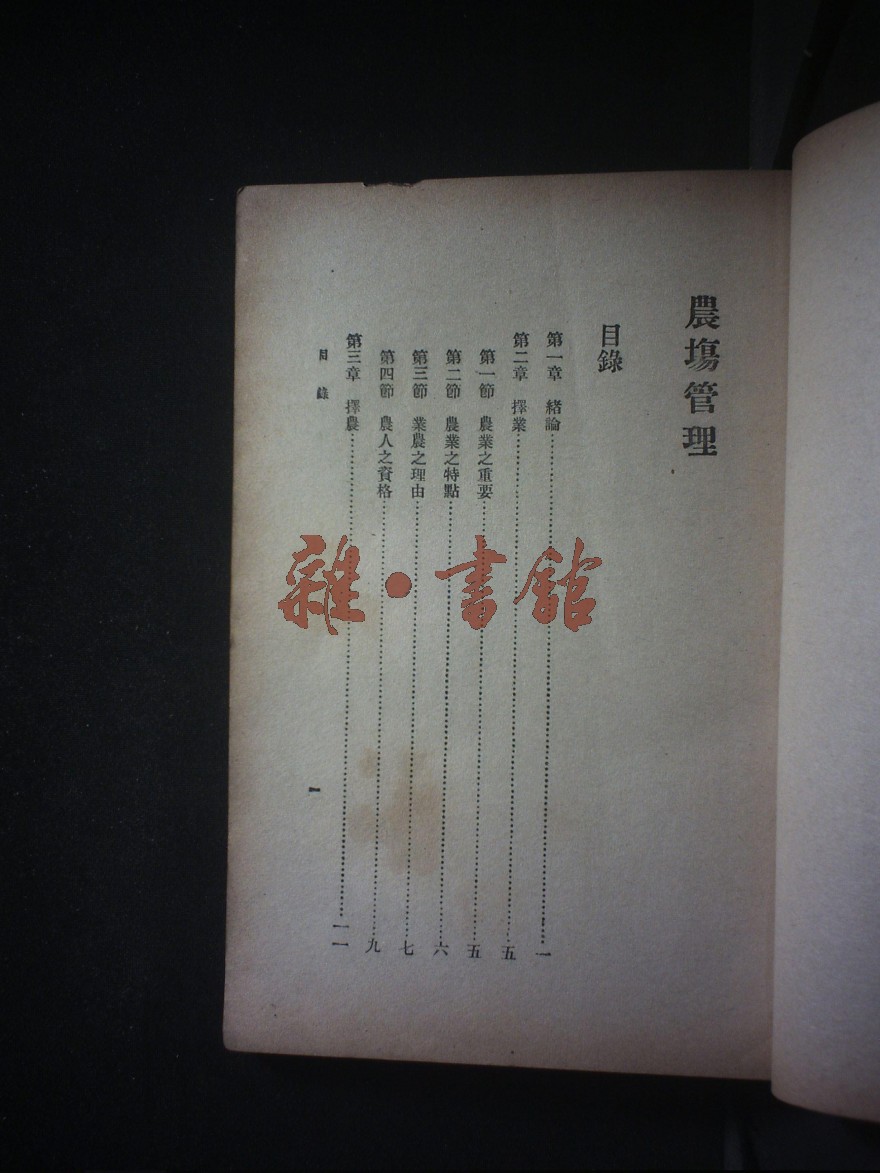 農塲管理
目錄
第一章 緒論……一
第二章 擇業……五
第一節 農業之重要……五
第二節 農業之特點……六
第三節 業農之理由……七
第四節 農人之資格……九
第三章 擇農……一一
目錄 一
雜·書館